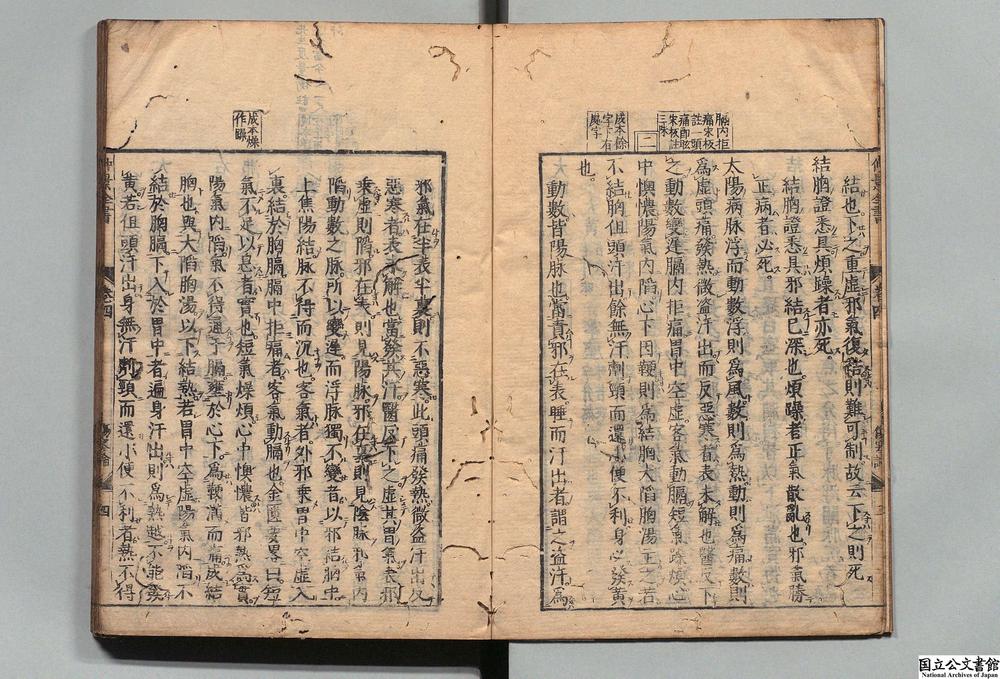 膈内拒
痛宋板
註一頭
痛即眩
宋板註
三味
二
成本餘
字下有
處字
結也下之重虛邪氣復結則難可制故云下之則死
結胸證悉具煩躁者亦死。
結胸證悉具邪結已深也煩躁者正氣散亂也邪氣勝
正病者必死。
太陽病脉浮而動數浮則爲風數則爲熱動則爲痛數則
爲虛頭痛發熱微盗汗出而反惡寒者表未解也醫反下
之動數變遲膈内拒痛胃中空虛客氣動膈短氣躁煩心
中懊憹陽氣内陷心下因鞕則爲結胸大陷胸湯主之若
不結胸但頭汗出餘無汗劑頸而還小便不利身必發黄
也。
動數皆陽脉也當責邪在表睡而汗出者謂之盗汗爲
成本燥
作躁
邪氣在半表半裏則不惡寒此頭痛發熱微盗汗出反
惡寒者表未解也當發其汗醫反下之虛其胃氣表邪
乘虛則陷邪在表則見陽脉邪在裏則見陰脉邪氣内
陷動數之脉所以變遲而浮脉獨不變者以邪結胸中
上焦陽結脉不得而沉也客氣者外邪乘胃中空虛入
裏結於胸膈膈中拒痛者客氣動膈也金匱要畧曰短
氣不足以息者實也短氣燥煩心中懊憹皆邪熱爲實
陽氣内陷氣不得通于膈壅於心下爲鞕滿而痛成結
胸也與大陷胸湯以下結熱若胃中空虛陽氣内陷不
結於胸膈下入於胃中者遍身汗出則爲熱越不能發
黄若但頭汗出身無汗劑頸而還小便不利者熱不得
仲景全書
卷四
四
国立公文書館
National Archives of Japan